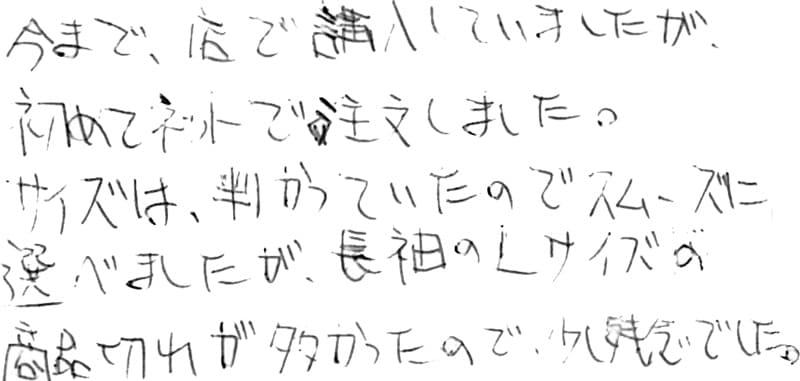 今まで、店で購入していましたが、
初めてネットで注文しました。
サイズは、判かっていたのでスムーズに
選べましたが、長袖のLサイズの
商品切れが多かったので、少し残念でした。